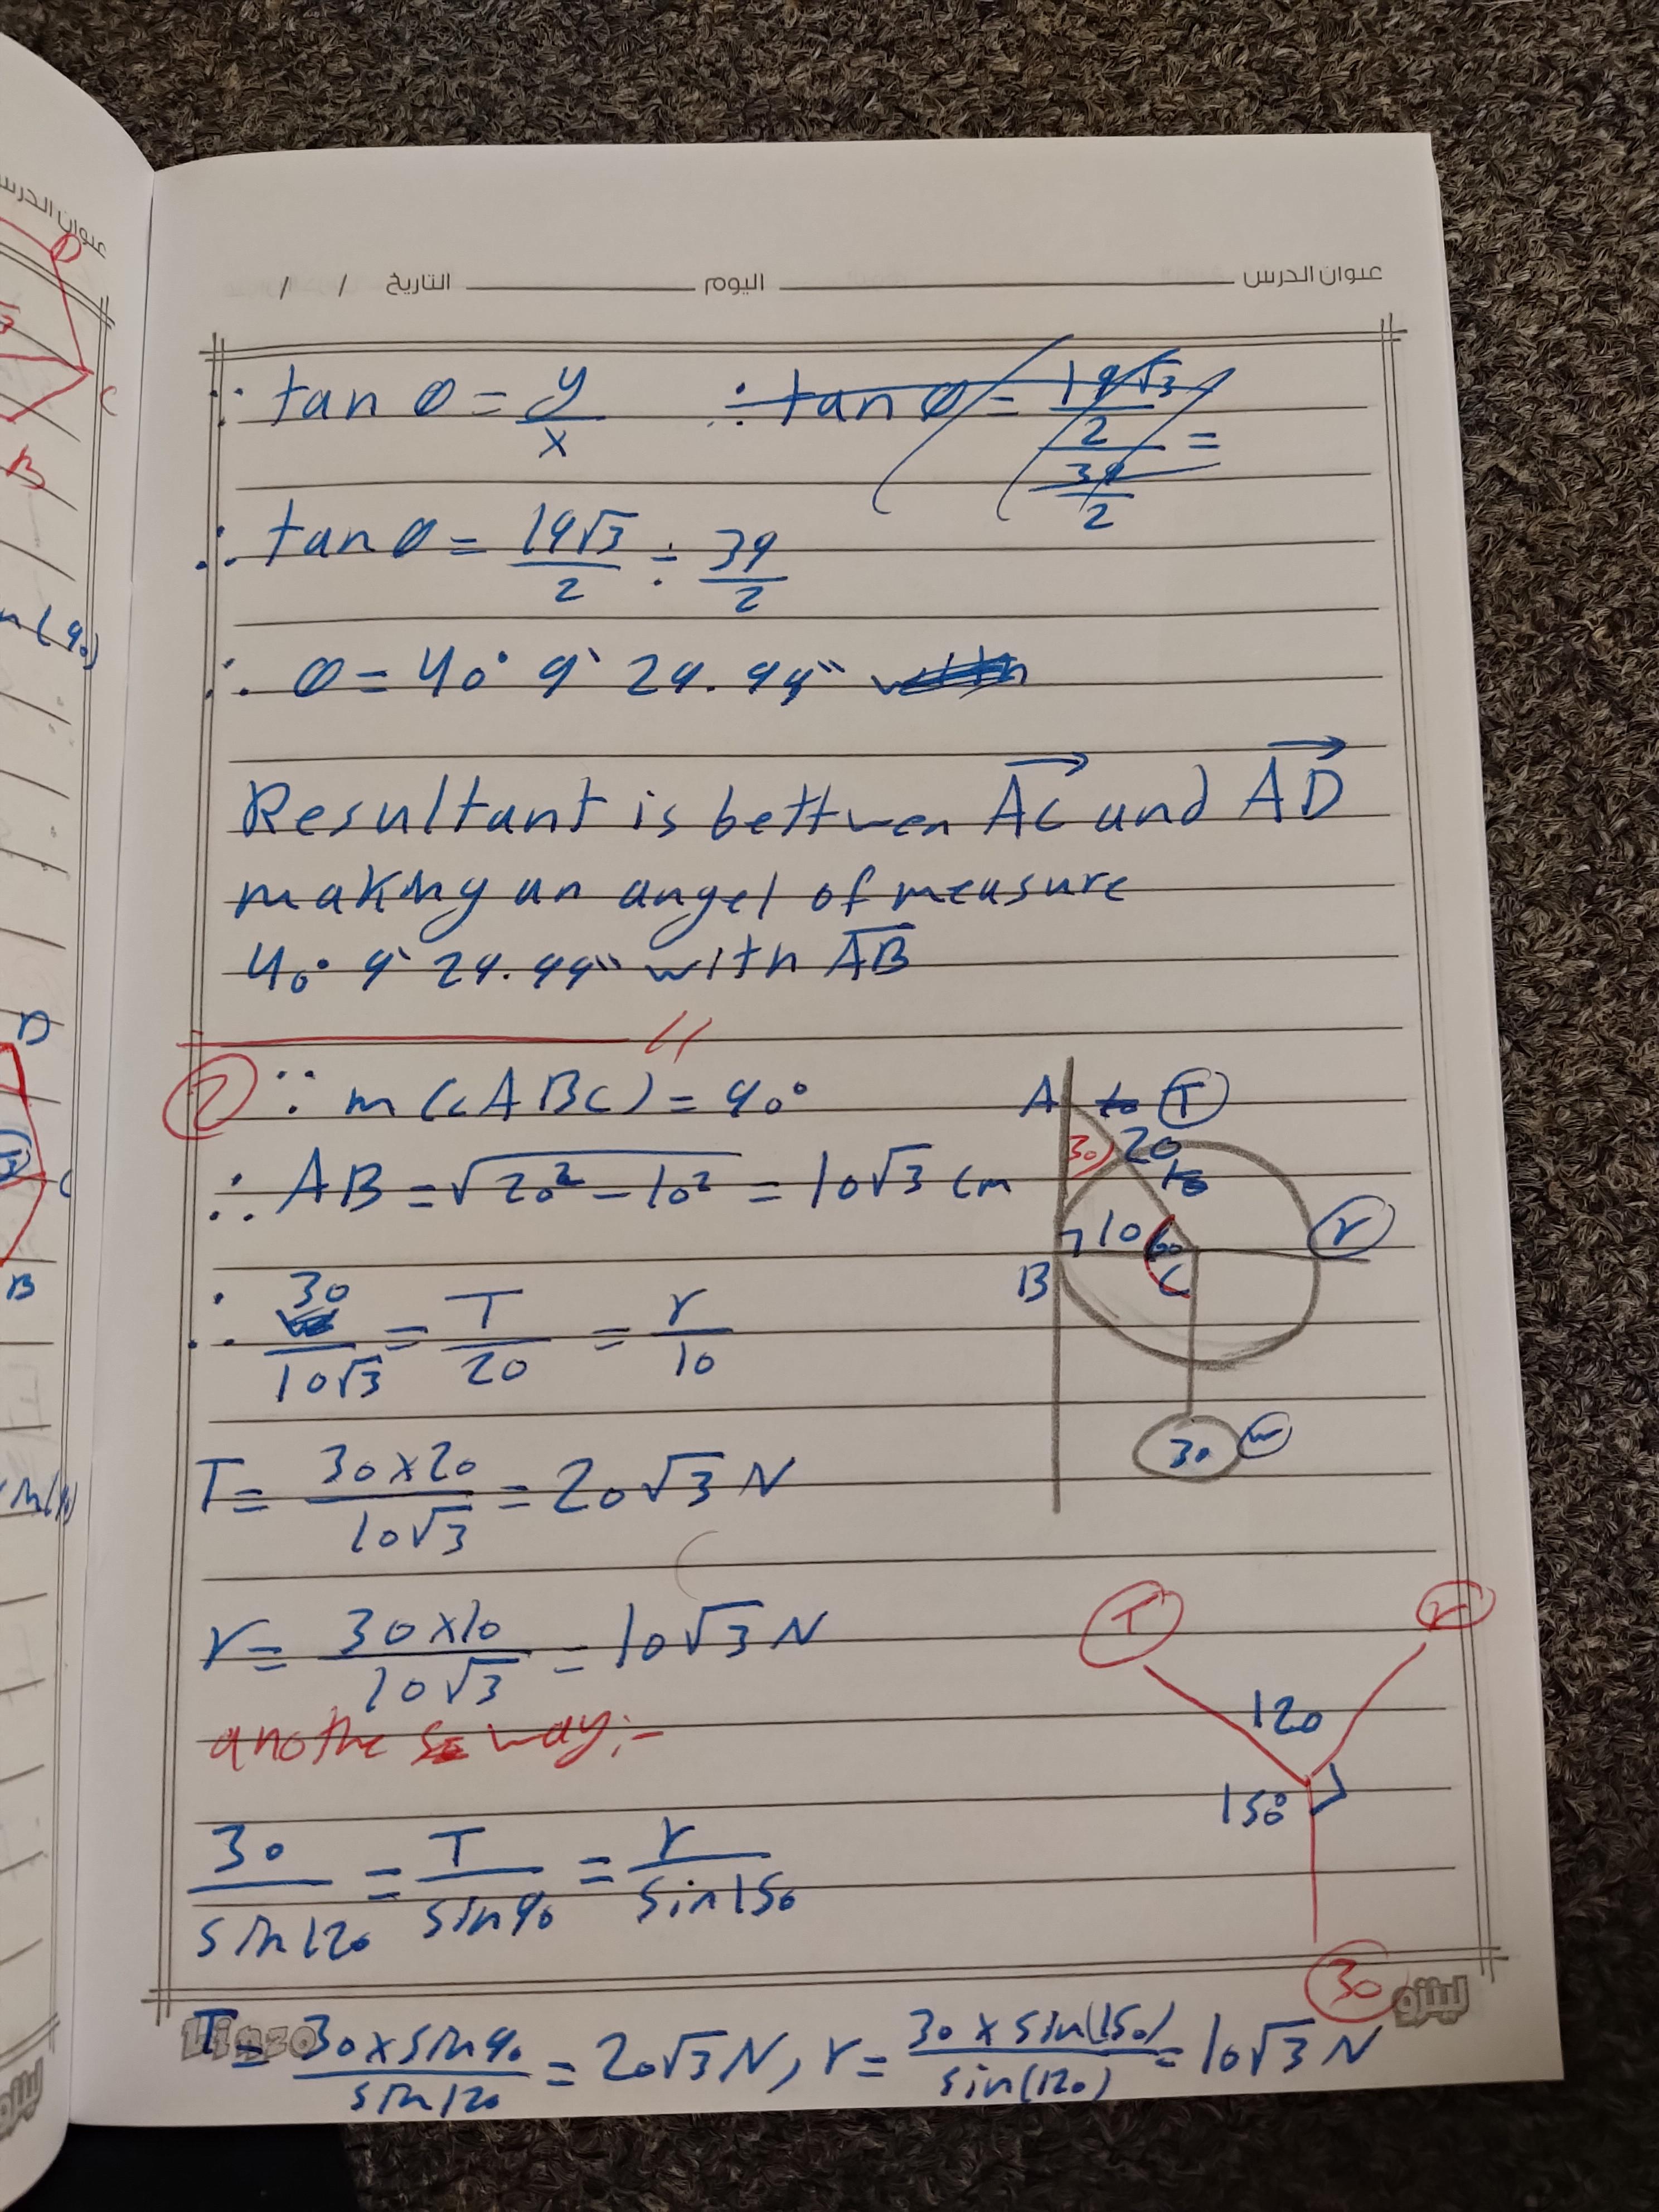 عنوان الدرس اليوم التاريخ / /
∵ tan θ = y/x ∴ tan θ = 19√3/2 / 39/2 =
∴ tan θ = 19√3/2 ÷ 39/2
∴ θ = 40° 9` 24.94``
Resultant is bettwen AC and AD
making an angel of measure
40° 9` 24.94`` with AB
② ∵ m(<ABC) = 90°
∴ AB = √20² - 10² = 10√3 cm
∴ 30/10√3 = T/20 = r/10
T = 30×20/10√3 = 20√3 N
r = 30×10/10√3 = 10√3 N
another way:-
30/sin120 = T/sin90 = r/sin150
T = 30×sin90/sin120 = 20√3 N, r = 30×sin(150)/sin(120) = 10√3 N
A T
30 20
10 60 r
B C
30 w
T r
120
150°
30
Linzo لينزو
عنوان الدرس
D
C
B
D
C
B
لينزو